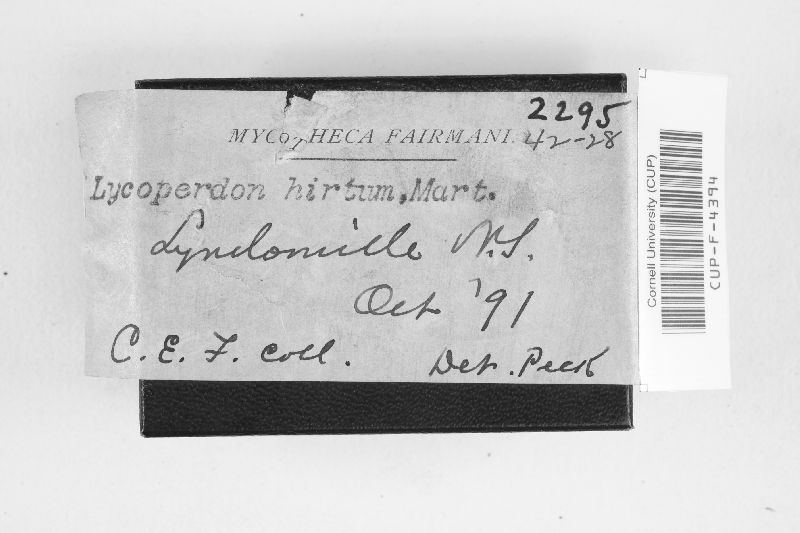 2295
MYCOTHECA FAIRMANI.
42-28
Lycoperdon hirtum, Mart.
Lyndonville N.Y.
Oct '91
C. E. F. coll.
Det. Peck
Cornell University (CUP)
CUP-F-4394